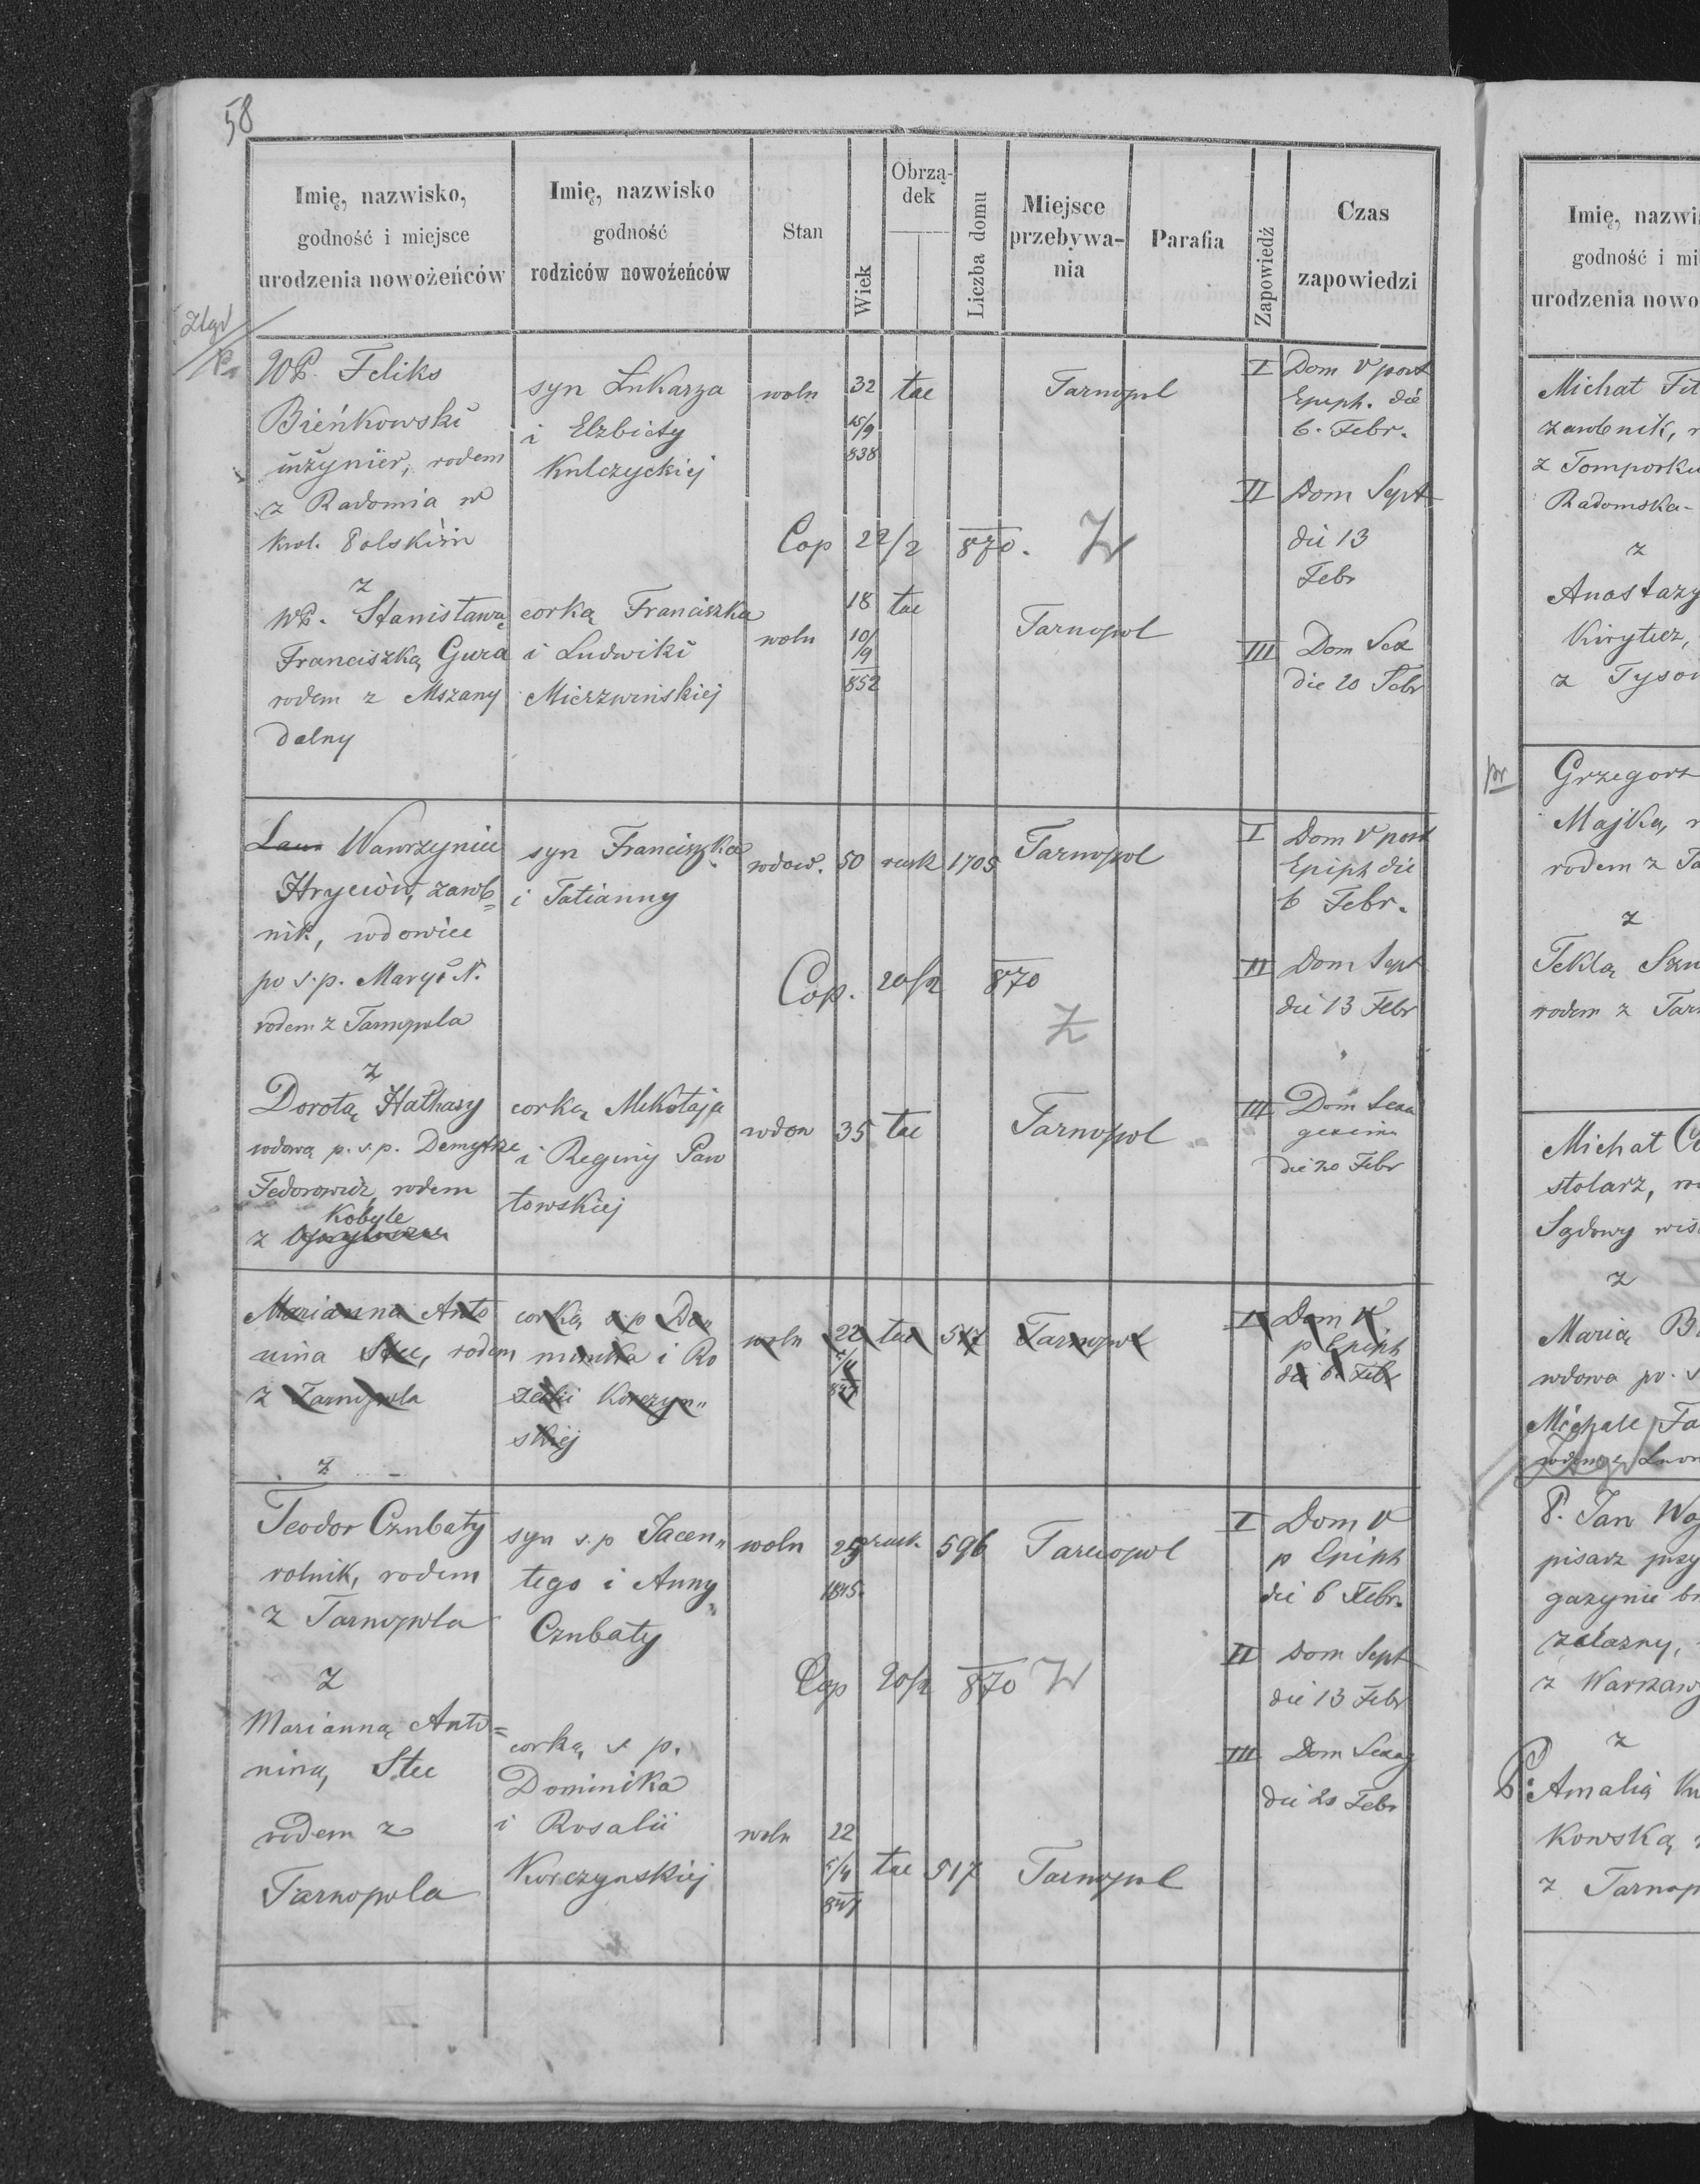 58
Imię, nazwisko,
godność i miejsce
urodzenia nowożeńców
Imię, nazwisko
godność
rodziców nowożeńców
Stan
Wiek
Obrzą-
dek
Liczba domu
Miejsce
przebywa-
nia
Parafia
Zapowiedź
Czas
zapowiedzi
WP. Feliks
Bieńkowski
inżynier, rodem
z Radomia w
Krol. Polskim
syn Łukarza
i Elzbiety
Kulczyckiej
woln
32
15/9
838
tac
Tarnopol
I Dom V post
Epiph. die
6. Febr.
II Dom Sept
die 13
Febr
III Dom Sex
die 20 Febr
Cop 22/2 870.
z
WP. Stanisławą
Franciszką Gura
rodem z Mszany
dalny
corką Franciszka
i Ludwiki
Mierzwinskiej
woln
18
10/9
852
tac
Tarnopol
Wawrzyniec
Hryciów, zarob=
nik, wdowiec
po s.p. Maryi N.
rodem z Tarnopola
syn Franciszka
i Tatianny
wdow. 50 rusk 1705 Tarnopol
I Dom V post
Epiph die
6 Febr.
II Dom Sept
die 13 Febr
III Dom Sexa
gesima
die 20 Febr
Cop. 20/2 870
z
Dorotą Hałhasy
wdową p. s.p. Demytrze
Fedorowicz, rodem
Kobyle
z
corką Mikołaja
i Reginy Paw
łowskiej
wdow 35 tac Tarnopol
Marianna Anto
nina Stec, rodem
z Tarnopola
z
corką s.p Do„
minika i Ro
zalii Korczyn„
skiej
woln 22 tac 517 Tarnopol
I Dom V
p Epiph
die 6. Febr
Teodor Czubaty
rolnik, rodem
z Tarnopola
syn s.p Jacen„
tego i Anny
Czubaty
woln 25 rusk 596 Tarnopol
1845.
I Dom V
p Epiph
die 6 Febr.
II Dom Sept
die 13 Febr
III Dom Sexag
die 20 Febr
Cop 20/2 870
z
Marianną Anto=
niną, Stec
rodem z
Tarnopola
corką s p.
Dominika
i Rosalii
Korczynskiej
woln 22
5/4
847
tac 517 Tarnopol
Imię, nazwi
godność i mi
urodzenia nowo
Michał
zarobnik, r
z
Radomska-
z
Anastazy
z
pr
Grzegorz
Majka, r
rodem z Ta
z
Teklą
rodem z Tar
Michał
stolarz, ro
z
Marią B
wdowa po. s
Michale
P. Jan
pisarz przy
gazynie
z Warszawy
z
P. Amalią
kowską
z Tarnop